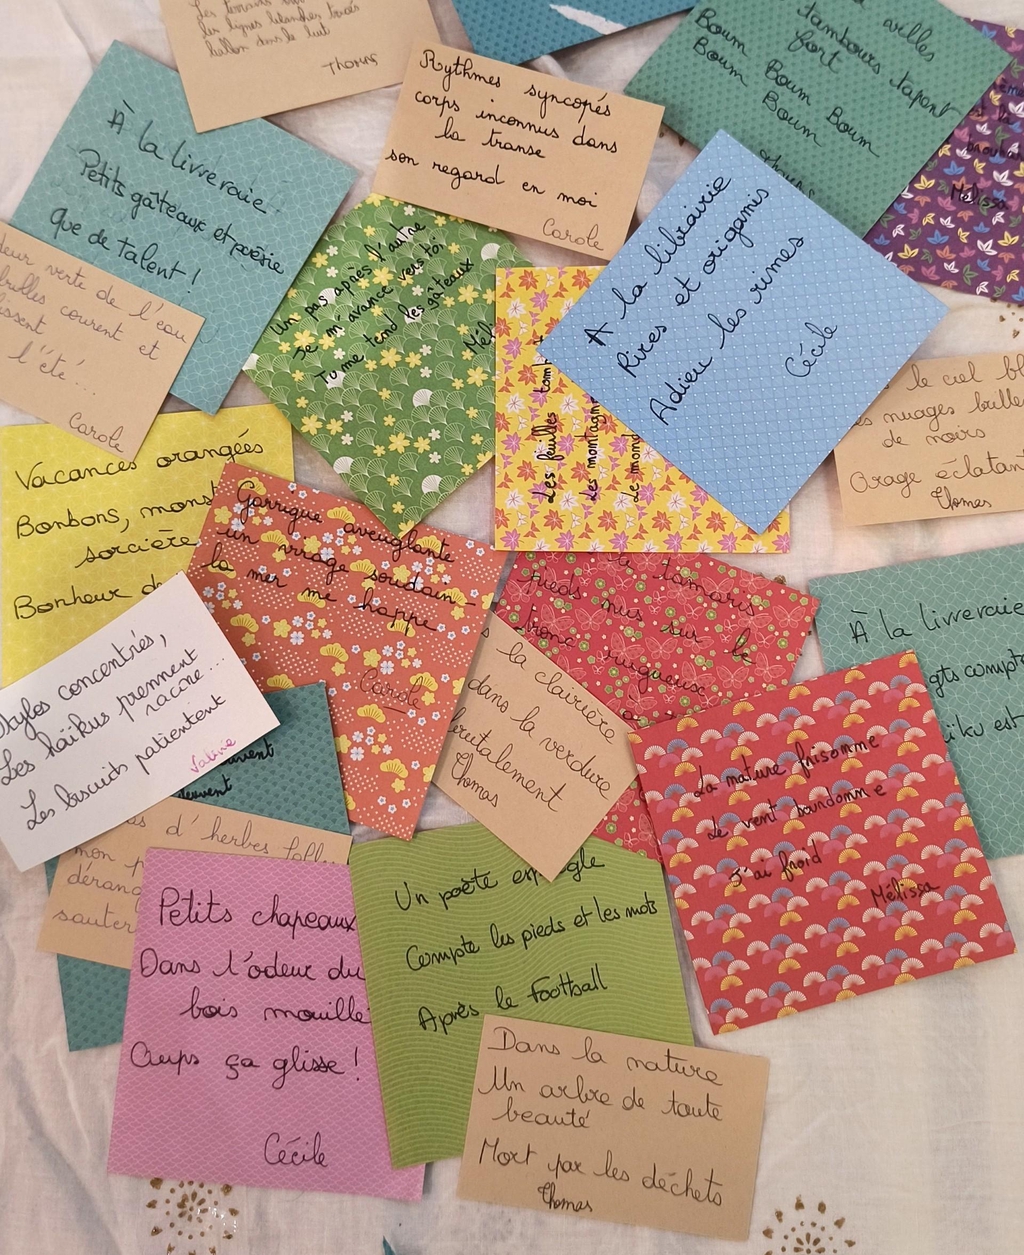 les lignes blanches
ballon dans le but
Thomas
Rythmes syncopés
corps inconnus dans
la transe
son regard en moi
Carole
tambours tapant
fort
Boum Boum Boum
Boum Boum
Mélissa
À la livreraie
Petits gâteaux et poésie
Que de talent !
verte de l'eau
courent et
l'été...
Carole
Un pas après l'autre
Je m'avance vers toi
Tu me tend les gâteaux
Mél
A la librairie
Rires et origamis
Adieu les rimes
Cécile
Les feuilles tom
Les montagn
le ciel
nuages
de noirs
Orage éclatant
Thomas
Vacances orangées
Bonbons, monst
sorcière
Bonheur d
Garrigue aveuglante
un virage soudain -
la mer me happe
Carole
tamaris
pieds nus sur le
tronc rugueux
À la livreraie
gts compt
ïku est
Stylos concentrés,
Les haïkus prennent
racine...
Les biscuits patientent
Valine
la clairière
dans la verdure
brutalement
Thomas
La nature frisonne
Le vent bandonne
J'ai froid
Mélissa
d'herbes foll
mon p
dérang
sauter
Petits chapeaux
Dans l'odeur du
bois mouillé
Oups ça glisse !
Cécile
Un poète en gle
Compte les pieds et les mots
Après le Football
Dans la nature
Un arbre de toute
beauté
Mort par les déchets
Thomas